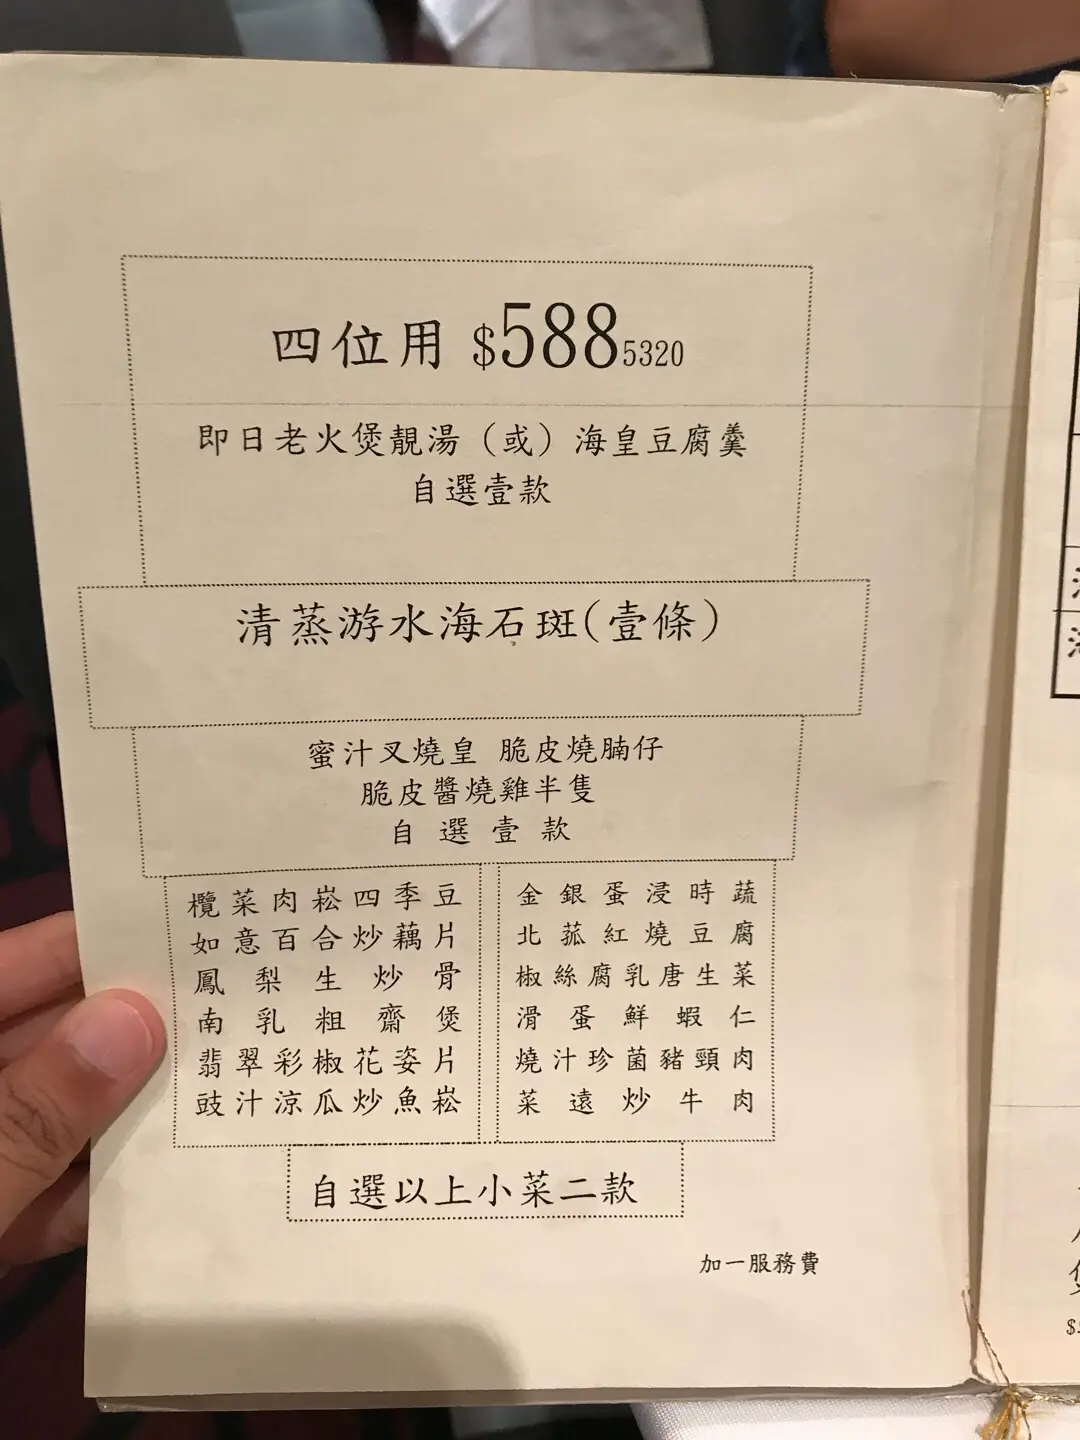 四位用 $588 5320
即日老火煲靚湯（或）海皇豆腐羹
自選壹款
清蒸游水海石斑(壹條)
蜜汁叉燒皇 脆皮燒腩仔
脆皮醬燒雞半隻
自選壹款
欖菜肉崧四季豆
如意百合炒藕片
鳳梨生炒骨
南乳粗齋煲
翡翠彩椒花姿片
豉汁涼瓜炒魚崧
金銀蛋浸時蔬
北菰紅燒豆腐
椒絲腐乳唐生菜
滑蛋鮮蝦仁
燒汁珍菌豬頸肉
菜遠炒牛肉
自選以上小菜二款
加一服務費